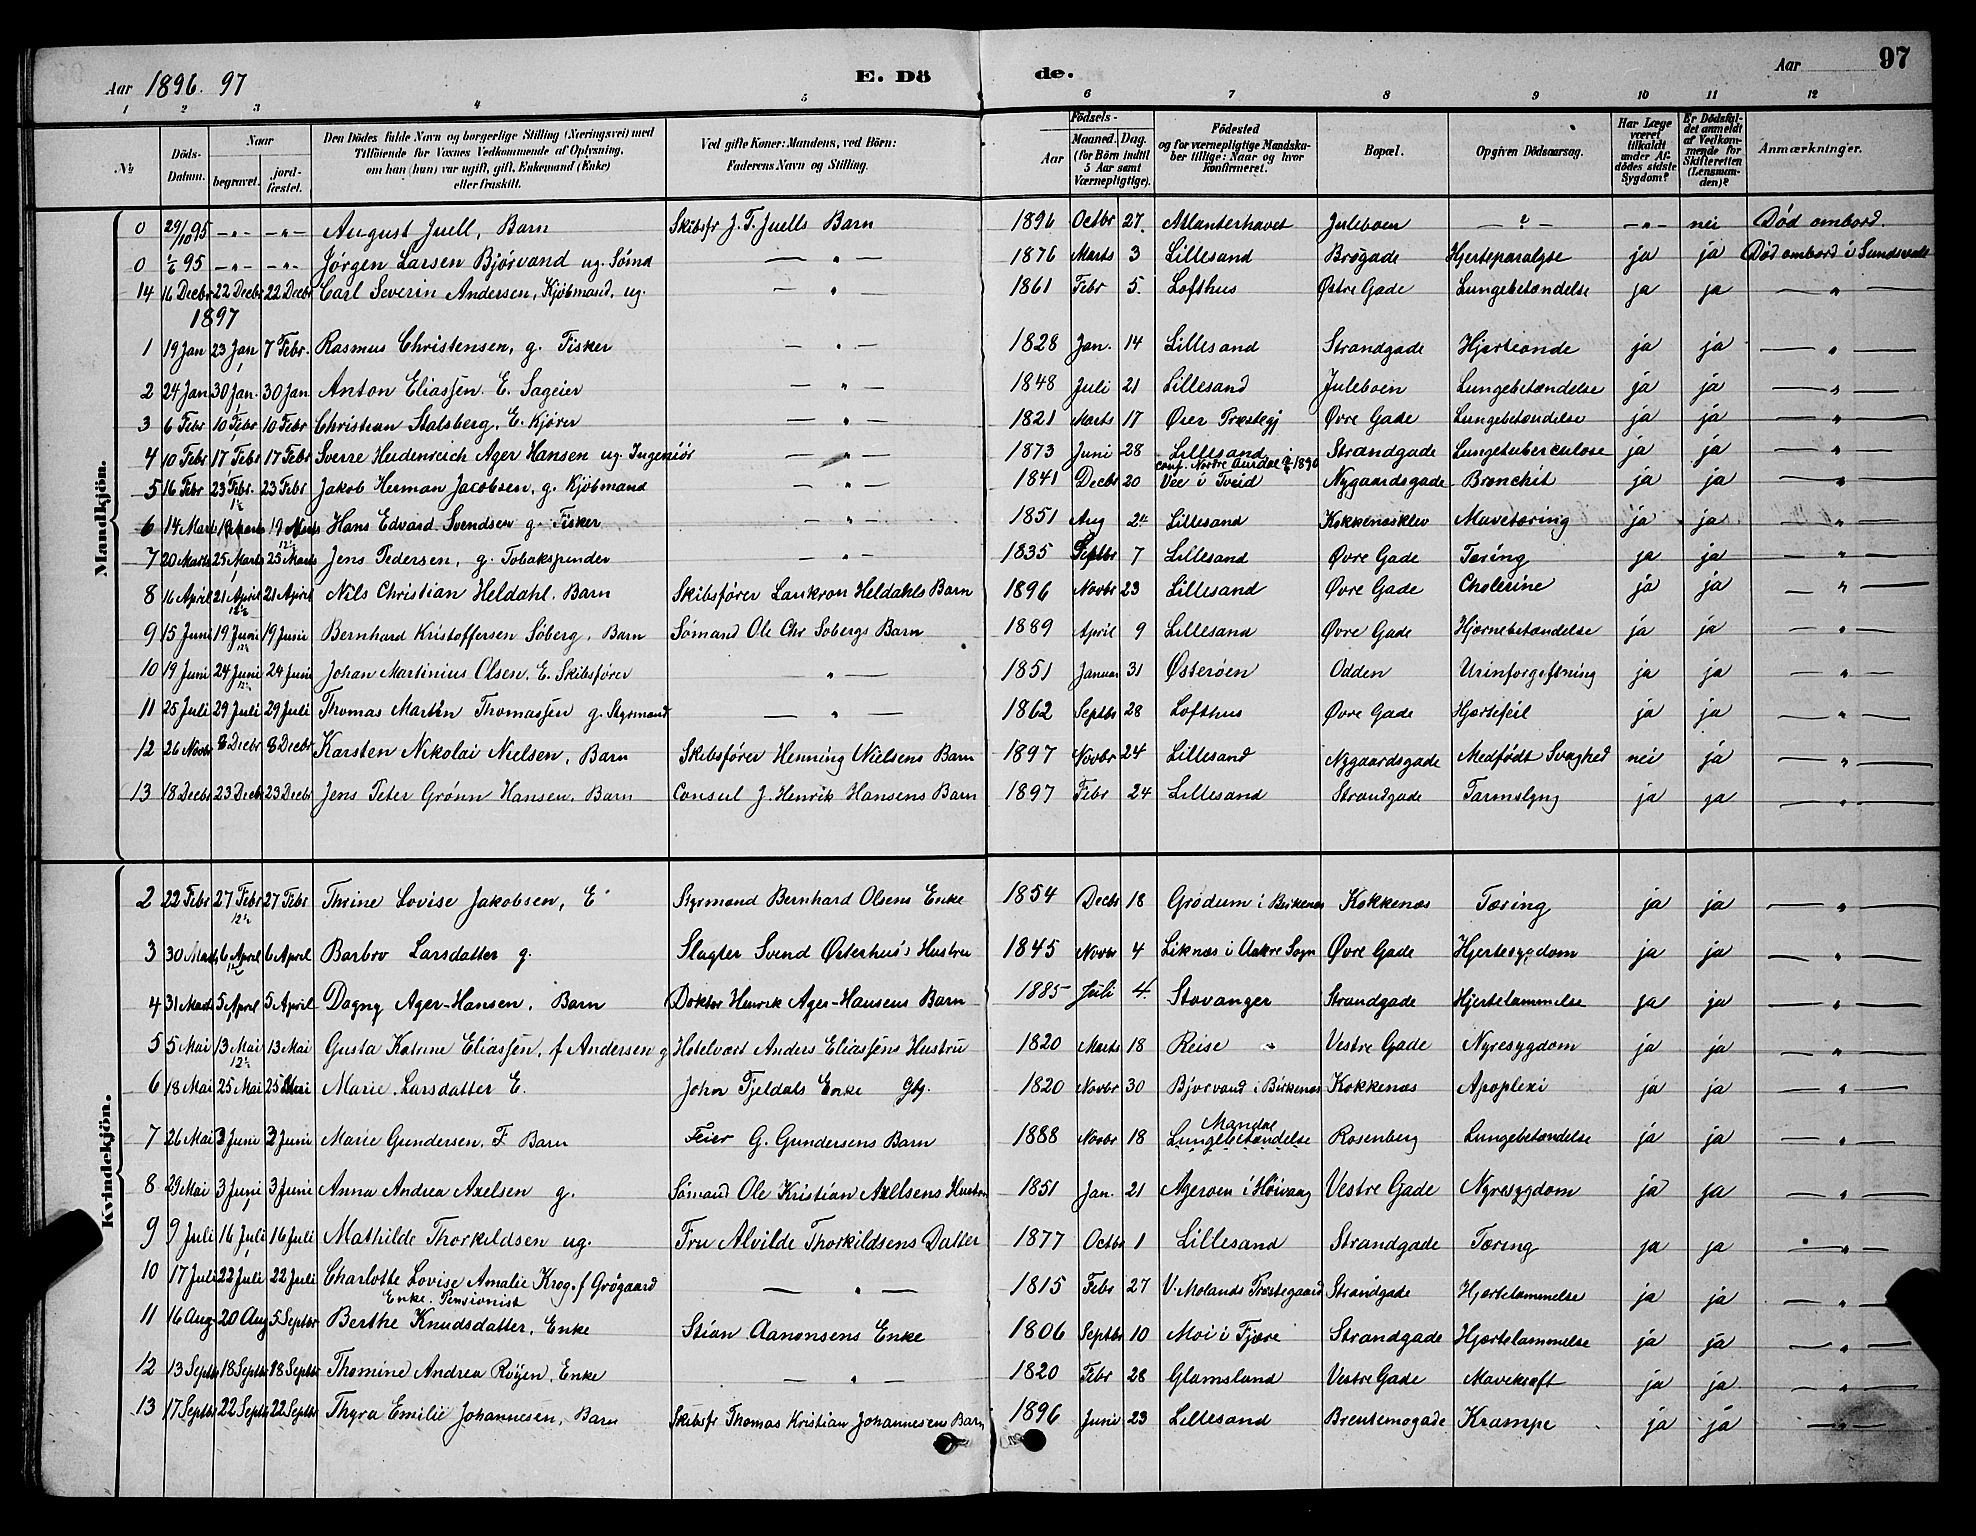 Aar 1896. 97 E. Dö de. Aar 97
1 2 3 4 5 6 7 8 9 10 11 12
№ Döds-Datum. Naar begravet. jord-fæstet. Den Dödes fulde Navn og borgerlige Stilling (Næringsvei) med Tilföiende for Voxnes Vedkommende af Oplysning, om han (hun) var ugift, gift, Enkemand (Enke) eller fraskilt. Ved gifte Koner: Mandens, ved Börn: Faderens Navn og Stilling. Födsels- Aar Maaned. Dag. (for Börn indtil 5 Aar samt Værnepligtige). Födested og for værnepligtige Mandskaber tillige: Naar og hvor konfirmeret. Bopæl. Opgiven Dödsaarsag. Har Læge været tilkaldt under Afdödes sidste Sygdom? Er Dödsfaldet anmeldt af Vedkommende for Skifteretten (Lensmanden)? Anmærkninger.
Mandkjön.
0 29/10 95 -"- -"- August Juell, Barn Skibsfr J. T. Juells Barn 1896 Octbr 27. Atlanterhavet Juleboen -"- -"- nei Död ombord.
0 1/6 95 -"- -"- Jørgen Larsen Bjørvand ug. Sömd — " — 1876 Marts 3 Lillesand Brøgade Hjerteparalyse ja ja Död ombord i Sundsvall
14 16 Decbr 22 Decbr 22 Decbr Carl Severin Andersen, Kjöbmand, ug. — " — 1861 Febr 5. Lofthus Østre Gade Lungebetændelse ja ja — " —
1897
1 19 Jan 23 Jan 7 Febr. Rasmus Christensen, g. Fisker — " — 1828 Jan. 14 Lillesand Strandgade Hjerteonde ja ja — " —
2 24 Jan 30 Jan. 30 Jan Anton Eliassen. E. Sageier — " — 1848 Juli 21 Lillesand Juleboen Lungebetændelse ja ja — " —
3 6 Febr 10 Febr 10 Febr Christian Stalsberg, E. Kjører — " — 1821 Marts 17 Øier Præstegj Øvre Gade Lungebetændelse ja ja — " —
4 10 Febr 17 Febr 17 Febr Sverre Heidenreich Ager Hansen ug. Ingeniör — " — 1873 Juni 28 Lillesand conf. Nordre Aurdal 1890 Strandgade Lungetuberculose ja ja — " —
5 16 Febr 23 Febr. 23 Febr Jakob Herman Jacobsen, g. Kjöbmand — " — 1841 Decbr 20 Vee i Tveid Nygaardsgade Bronchit ja ja — " —
6 14 Mart 19 Marts 19 Marts Hans Edvard Svendsen g. Fisker — " — 1851 Aug 24 Lillesand Kokkenæsklev Mavetæring ja ja — " —
7 20 Marts 25 Marts 25 Marts Jens Pedersen, g. Tobakspinder — " — 1835 Septbr 7 Lillesand Øvre Gade Tæring ja ja — " —
8 16 April 21 April 21 April Nils Christian Heldahl. Barn Skibsfører Laukron Heldahls Barn 1896 Novbr 23 Lillesand Øvre Gade Cholerine ja ja — " —
9 15 Juni 19 Juni 19 Juni Bernhard Kristoffersen Söberg, Barn Sömand Ole Chr Sobergs Barn 1889 April 9 Lillesand Øvre Gade Hjernebetændelse ja ja — " —
10 19 Juni 24 Juni 24 Juni Johan Martinius Olsen, E. Skibsfører — " — 1851 Januar 31 Østerøen Odden Urinforgiftning ja ja — " —
11 25 Juli 29 Juli 29 Juli Thomas Martin Thomassen g. Styrmand — " — 1862 Septbr 28 Lofthus Øvre Gade Hjertefeil ja ja — " —
12 26 Novbr 8 Decbr 8 Decbr Karsten Nikolai Nielsen, Barn Skibsfører Henning Nielsens Barn 1897 Novbr 24 Lillesand Nygaardsgade Medfödt Svaghed nei ja — " —
13 18 Decbr 23 Decbr 23 Decbr Jens Peter Grönn Hansen, Barn Consul J. Henrik Hansens Barn 1897 Febr 24 Lillesand Strandgade Tarmslyng ja ja — " —
Kvindekjön.
2 22 Febr 27 Febr 27 Febr Thrine Lovise Jakobsen, E Styrmand Bernhard Olsens Enke 1854 Decbr 18 Grödum i Birkenæs Kokkenæs Tæring ja ja — " —
3 30 Marts 6 April 6 April Barbro Larsdatter g. Slagter Svend Østerhus's Hustru 1845 Novbr 4 Liknæs i Aakre Sogn Øvre Gade Hjertesygdom ja ja — " —
4 31 Marts 5 April 5 April Dagny Ager-Hansen, Barn Doktor Henrik Ager-Hansens Barn 1885 Juli 4. Stavanger Strandgade Hjertelammelse ja ja — " —
5 5 Mai 13 Mai 13 Mai Gusta Katrine Eliassen, f Andersen g Hotelvært Anders Eliassens Hustru 1820 Marts 18 Reise Vestre Gade Nyresygdom ja ja — " —
6 18 Mai 25 Mai 25 Mai Marie Larsdatter E. John Tjeldals Enke Gbg. 1820 Novbr 30 Bjorvand i Birkenæs Kokkenæs Apoplexi ja ja — " —
7 26 Mai 3 Juni 3 Juni Marie Gundersen, F Barn Feier G. Gundersens Barn 1888 Novbr 18 Mandal Lungebetændelse Rosenberg Lungebetændelse ja ja — " —
8 29 Mai 3 Juni 3 Juni Anna Andrea Axelsen g. Sömand Ole Kristian Axelsens Hustru 1851 Jan. 21 Ageröen i Höivaag Vestre Gade Nyresygdom ja ja — " —
9 9 Juli 16 Juli 16 Juli Mathilde Thorkildsen ug. Fru Alvilde Thorkildsens Datter 1877 Octbr 1 Lillesand Strandgade Tæring ja ja — " —
10 17 Juli 22 Juli 22 Juli Charlotte Lovise Amalie Krog. f Grögaard Enke. Pensionist — " — 1815 Febr 27 V. Molands Præstegaard Strandgade Hjertelammelse ja ja — " —
11 16 Aug. 20 Aug 5 Septbr Berthe Knudsdatter, Enke Stian Aanonsens Enke 1806 Septbr 10 Moi i Fjære Strandgade Hjertelammelse ja ja — " —
12 13 Septbr 18 Septbr 18 Septbr Thomine Andrea Röyen, Enke — " — 1820 Febr 28 Glamsland Vestre Gade Mavekræft ja ja — " —
13 17 Septbr 22 Septbr 22 Septbr Thyra Emilie Johannesen, Barn Skibsfr Thomas Kristian Johannesens Barn 1896 Juni 23 Lillesand Brentemogade Krampe ja ja — " —